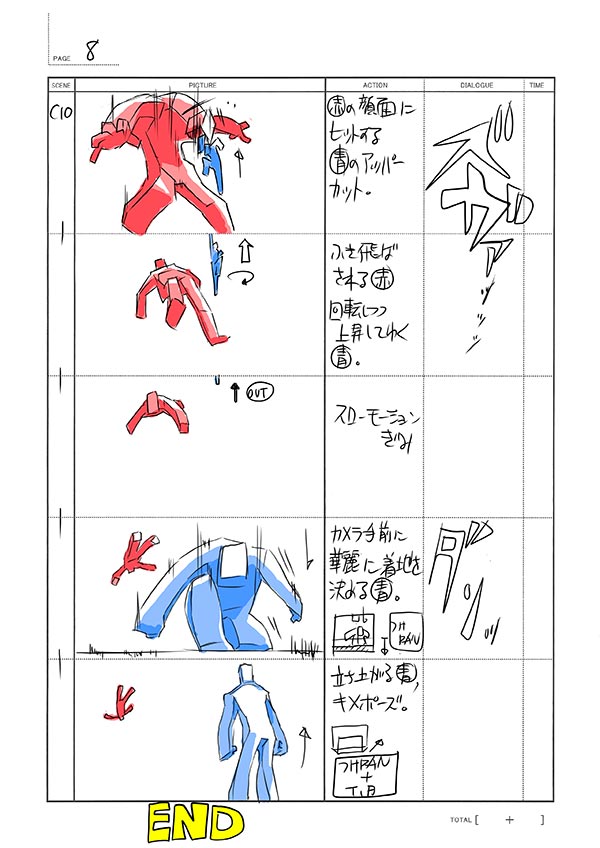 PAGE 8
SCENE PICTURE ACTION DIALOGUE TIME
C10
赤の顔面に
ヒットする
青のアッパー
カット。
ズガァァ
ふき飛ば
される赤
回転しつつ
上昇してゆく
青。
OUT
スローモーション
ぎみ
カメラ手前に
華麗に着地を
決める青。
フカンPAN
ダンッ
立ち上がる青、
キメポーズ。
PAN
+
T.B
END
TOTAL [ + ]